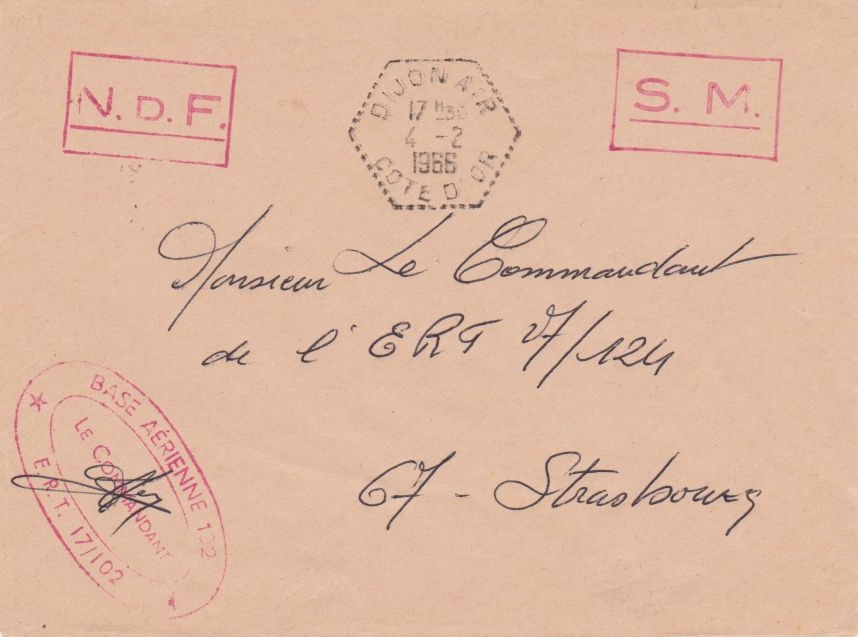 N. D. F.
DIJON AIR
17 H30
4 -2
1966
COTE D'OR
S. M.
Monsieur Le Commandant
de l'ERT 17/124
67 - Strasbourg
BASE AÉRIENNE 102
LE COMMANDANT
E.R.T. 17/102